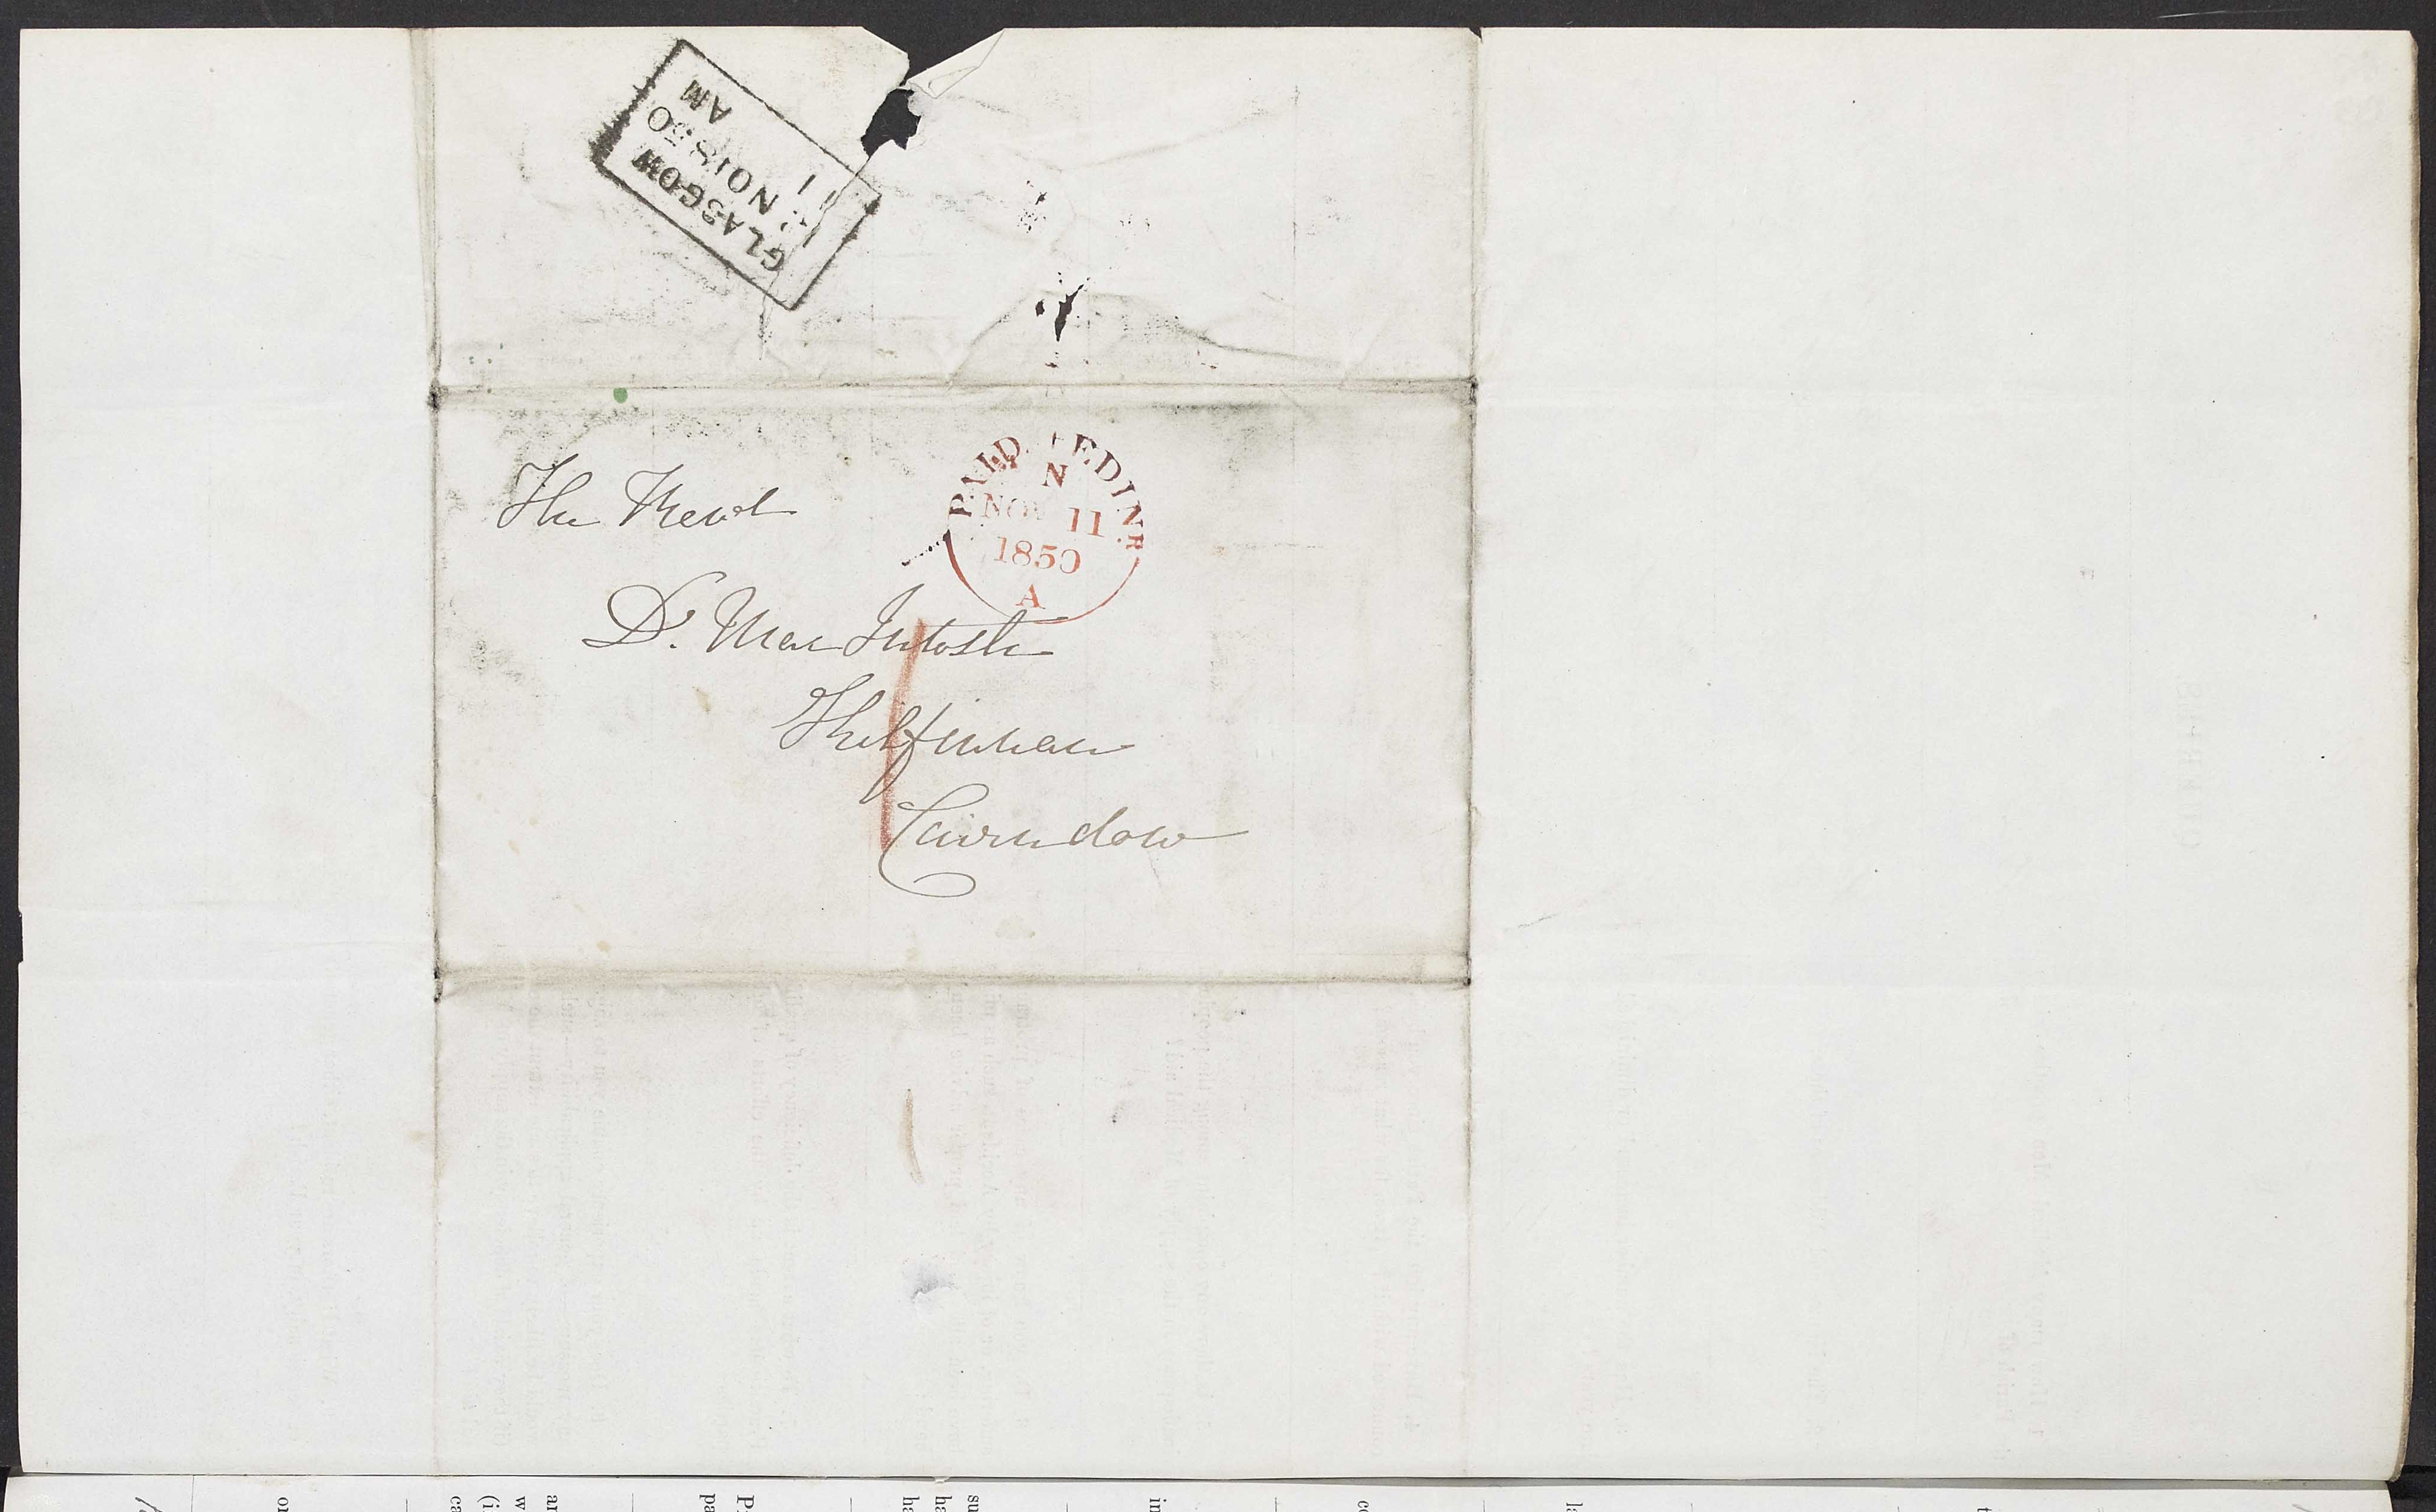 GLASGOW
NO 1850
AM
PAID EDINR
N
NOV 11
1850
A
The Revd
Dr. Mac Intosh
Cairndow